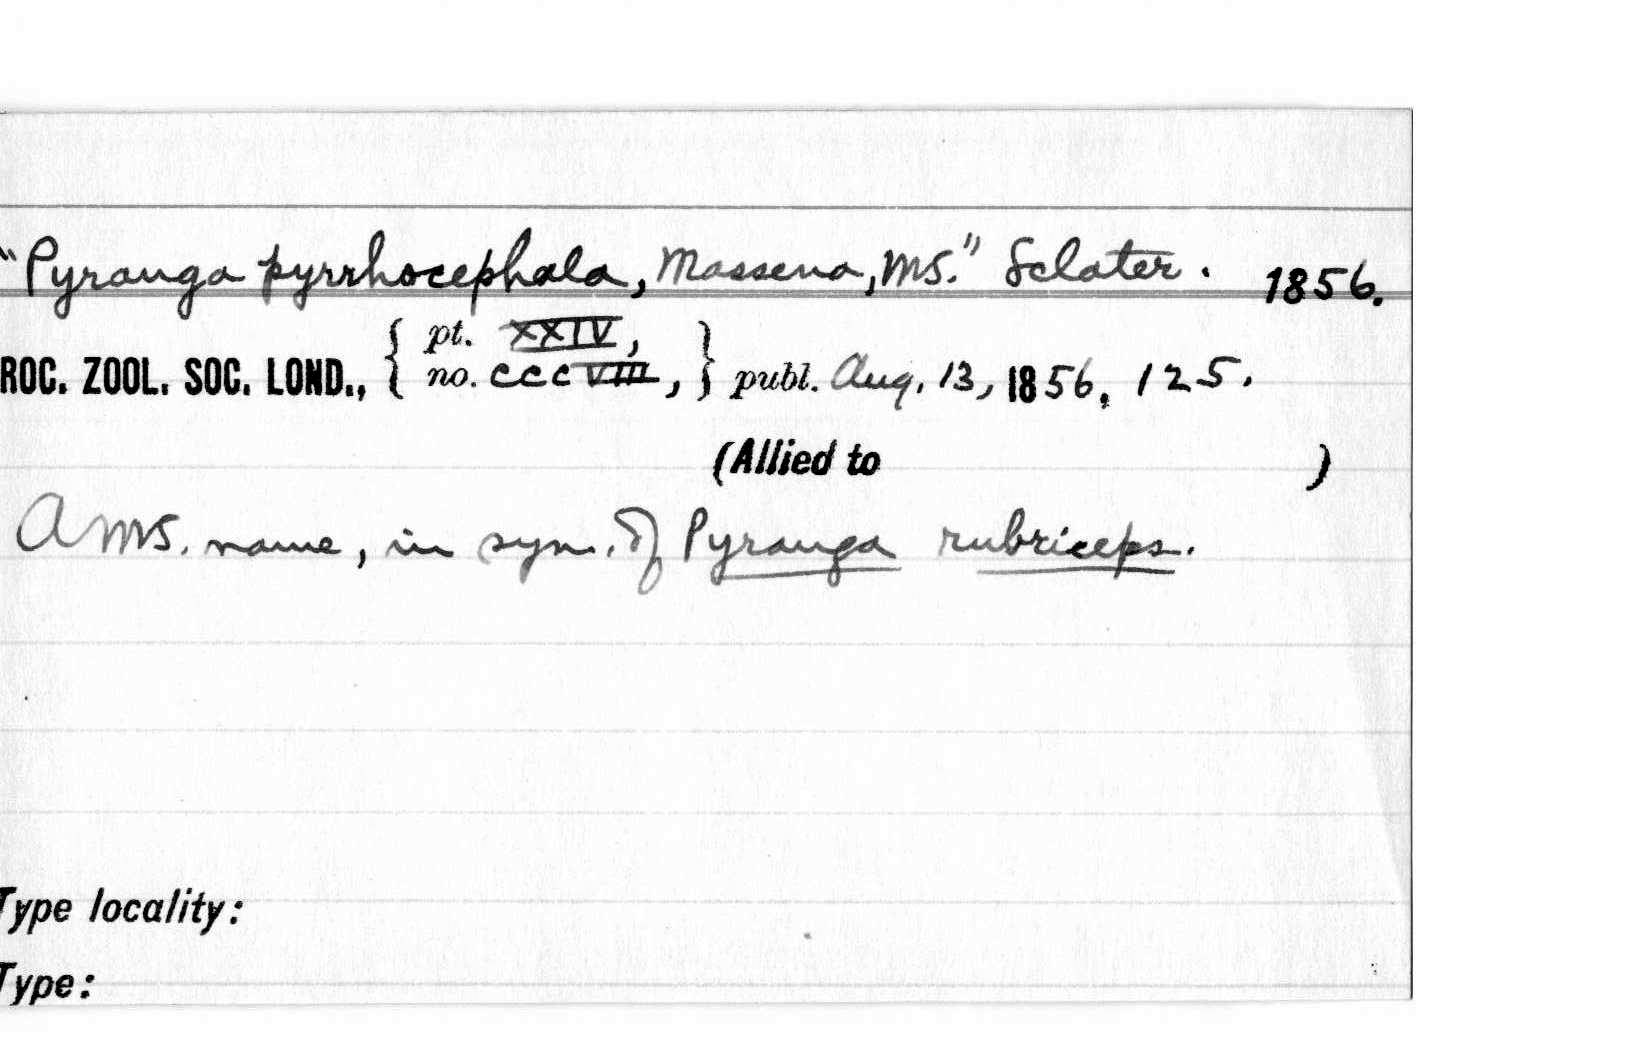 "Pyranga pyrrhocephala, Massena, MS." Sclater. 1856.
ROC. ZOOL. SOC. LOND., { pt. XXIV, no. CCCVIII, } publ. Aug. 13, 1856, 125.
(Allied to )
A MS. name, in syn. of Pyranga rubriceps.
Type locality:
Type: